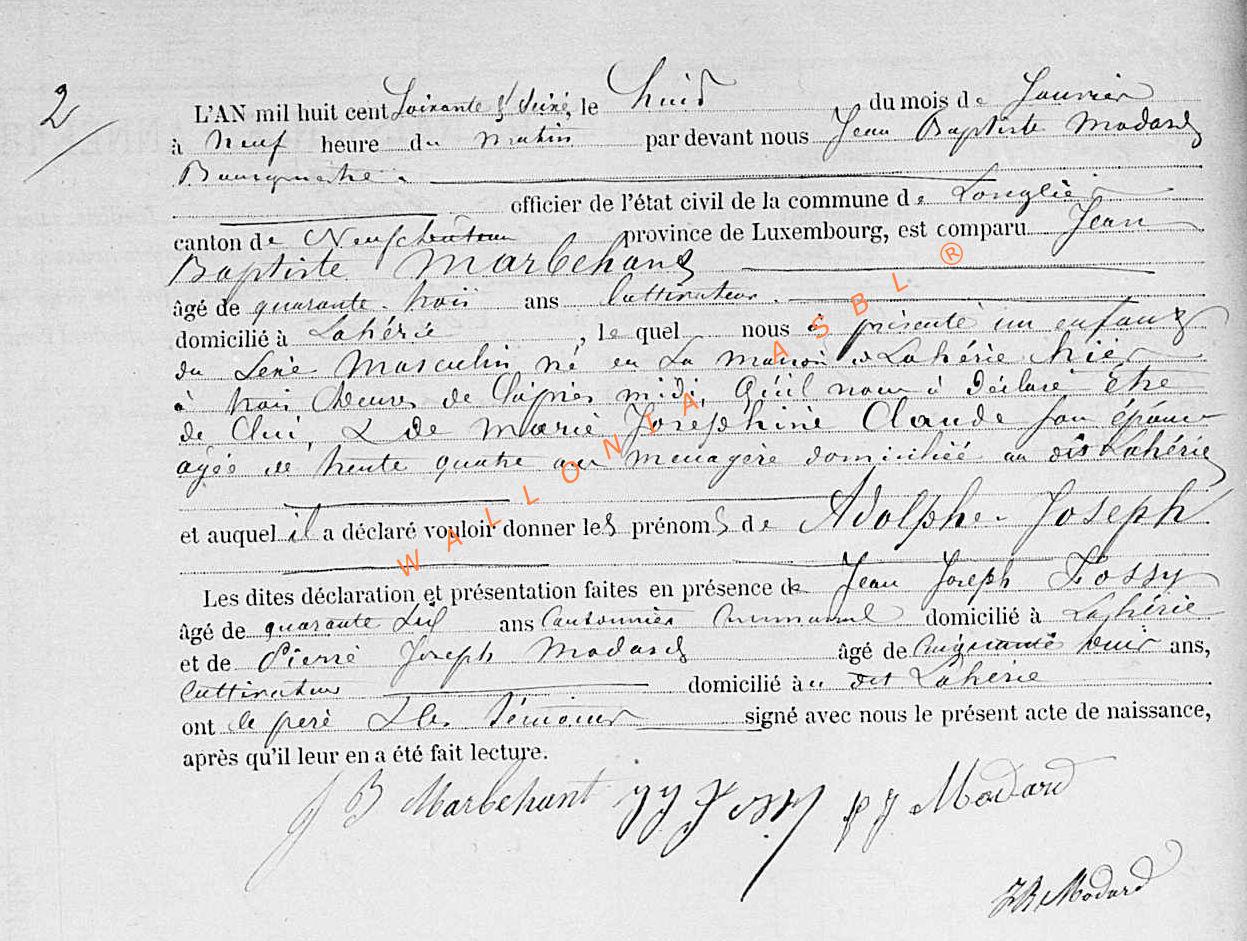 2
L'AN mil huit cent Soixante & Seize, le huit du mois de Janvier
à neuf heure du matin par devant nous Jean Baptiste Modard
Bourgmestre
officier de l'état civil de la commune de Longlier
canton de Neufchâteau province de Luxembourg, est comparu Jean
Baptiste Marbehant
âgé de quarante-trois ans Cultivateur
domicilié à Lahérie, le quel nous à présenté un enfant
du Sexe Masculin né en Sa maison à Lahérie hier
à trois heures de l'après midi, qu'il nous à déclaré être
de Lui, & de Marie Joséphine Claude son épouse
agée de trente quatre ans ménagère domiciliée au dit Lahérie
et auquel il a déclaré vouloir donner les prénoms de Adolphe Joseph
Les dites déclaration et présentation faites en présence de Jean Joseph Fossy
âgé de quarante six ans Cantonnier communal domicilié à Lahérie
et de Pierre Joseph Modard âgé de cinquante huit ans,
Cultivateur domicilié au dit Lahérie
ont le père & les témoins signé avec nous le présent acte de naissance,
après qu'il leur en a été fait lecture.
J B Marbehant JJ Fossy P J Modard
JB Modard
WALLONIA ASBL ®